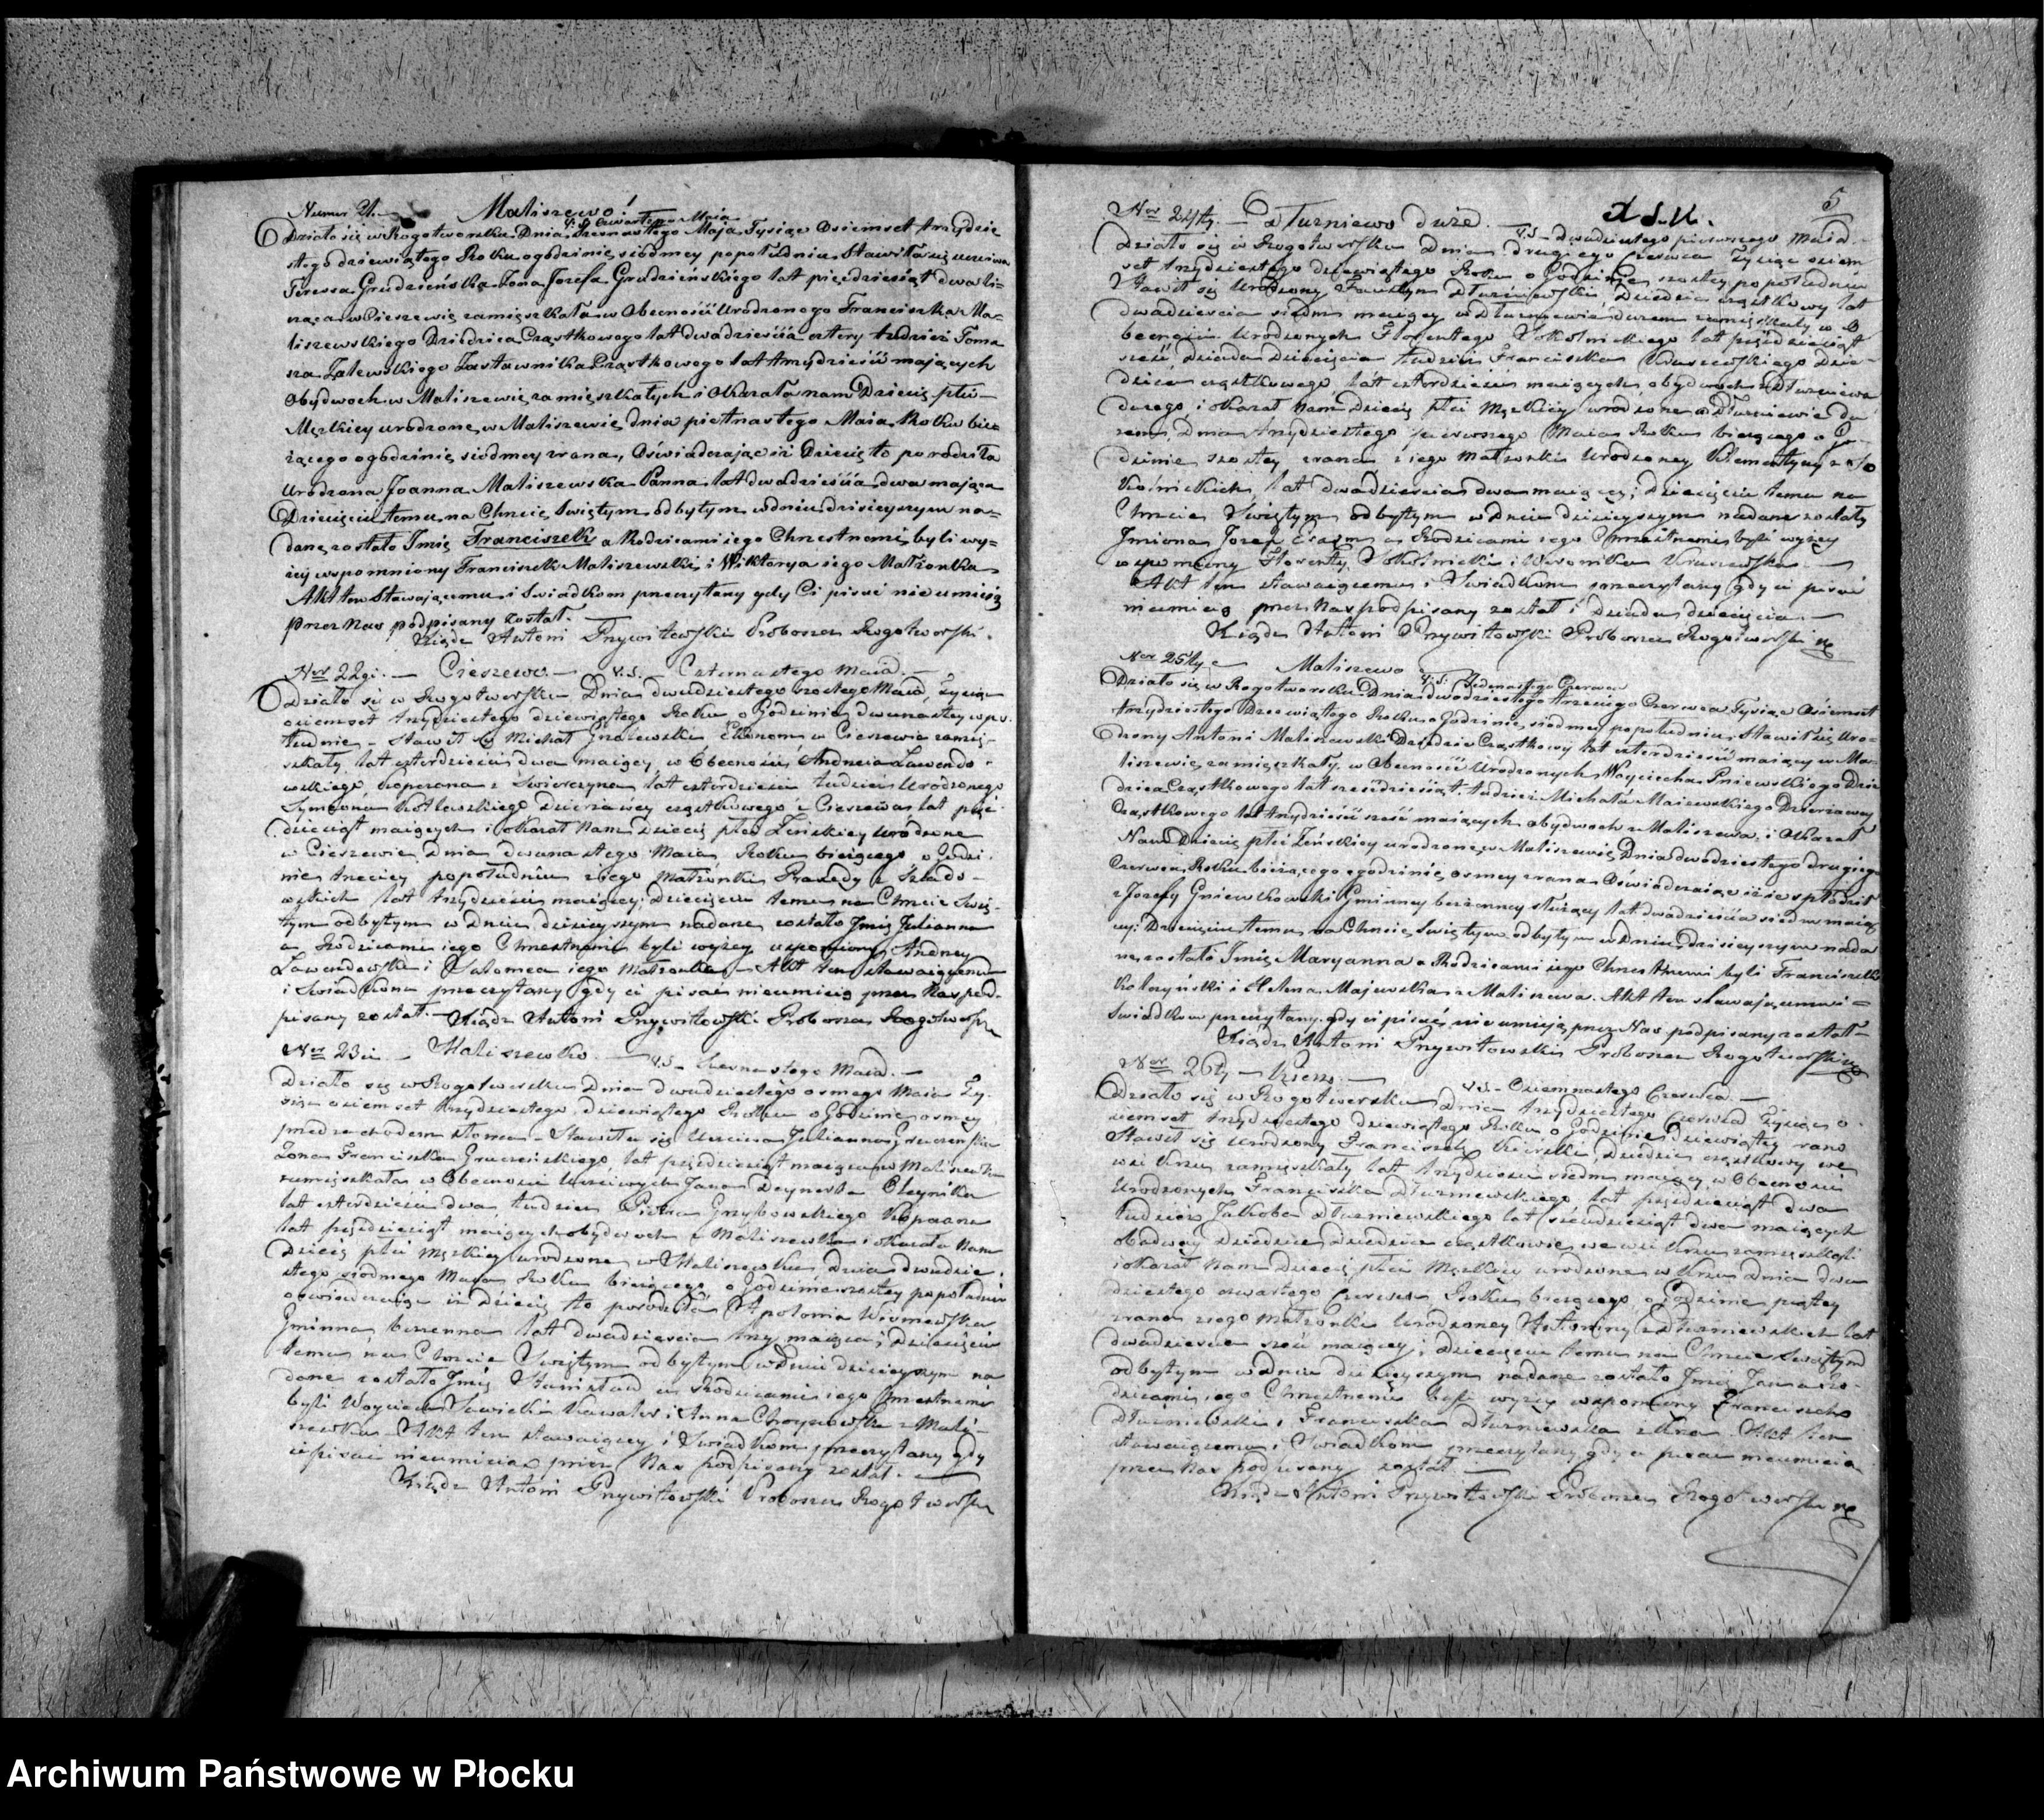 Numer 21. Maliszewo!
V.S. Czwartego Maja
Działo się w Rogotworsku Dnia Szesnastego Maja Tysiąc Osiemset trzydzie
stego dziewiątego Roku o godzinie siódmey popołudniu Stawiła się uczciwa
Teressa Grudzieńska Zona Jozefa Grudzieńskiego lat pięćdziesiąt dwa li-
cząca w Cieszewie zamięszkała w Obecności Urodzonego Franciszka Ma-
liszewskiego Dziedzica Cząstkowego lat dwadzieścia cztery tudzież Toma
sza Zalewskiego Zastawnika Cząstkowego lat trzydzieści mających
obydwoch w Maliszewie zamięszkałych i Okazała nam Dziecię płci
Męzkiey urodzone w Maliszewie dnia piętnastego Maia Roku bie-
żącego o godzinie siodmey zrana, Oświadczając iż Dziecię to porodziła
Urodzona Joanna Maliszewska Panna lat dwadzieścia dwa mająca
Dziecięciu temu na Chrzcie Swiętym odbytym w dniu dzisieyszym na-
dane zostało Imię Franciszek a Rodzicami iego Chrzestnemi byli wy-
żey wspomniony Franciszek Maliszewski i Wiktorya iego Małżonka
Akt ten Stawającemu i Swiadkom przeczytany gdy Ci pisać nie umieią
przez Nas podpisany został.
Xiądz Antoni Przywitowski Proboszcz Rogotworski.
Nor 22gi. — Cieszewo — V.S. — Czternastego Maia. —
Działo się w Rogotworsku Dnia dwudziestego szostego Maia Tysiąc
osiemset trzydziestego dziewiątego Roku o Godzinie dwunastey w po-
łudnie — Stawił się Michał Ekonom w Cieszewie zamię-
szkały lat czterdzieści dwa maiący, w Obecności Andrzeia Lawendo-
wskiego, lat czterdzieści tudzież Urodzonego
Symeona Kotłowskiego Dzierżawcy cząstkowego z Cieszewa lat pięć
dziesiąt maiących i okazał Nam Dziecię płci Zeńskiey urodzone
w Cieszewie Dnia dwunastego Maia Roku bieżącego o Godzi-
nie trzeciey popołudniu z iego Małżonki Praxedy z Szlado-
wskich lat trzydzieści maiącey; Dziecięciu temu na Chrzcie Swię-
tym odbytym w Dniu dzisieyszym nadane zostało Imię Julianna
a Rodzicami iego Chrzestnemi byli wyżey wspomniony Andrzey
Lawendowski i Salomea iego Małżonka — Akt ten stawaiącemu
i Swiadkom przeczytany gdy ci pisać nieumieią przez Nas pod-
pisany został. — Xiądz Antoni Przywitowski Proboszcz Rogotworski
Nor 23ci. — Maliszewko. — V.S. — Szesnastego Maia. —
Działo się w Rogotworsku Dnia dwudziestego osmego Maia Ty-
siąc osiemset trzydziestego dziewiątego Roku o Godzinie osmey
przed zachodem słonca — Stawiła się Uczciwa Julianna
Zona Franciszka lat pięćdziesiąt maiąca w Maliszewku
zamięszkała w Obecności Uczciwych Jana Deynerta
lat czterdzieści dwa tudzież Piotra Grzybowskiego
lat pięćdziesiąt maiących obydwoch z Maliszewka i okazała Nam
Dziecię płci Męzkiey urodzone w Maliszewku Dnia dwudzie-
stego siodmego Maia Roku bieżącego o Godzinie szostey popołudniu
oświadczaiąc iż Dziecię to porodziła Apolonia Wiśniewska
Gminna bezzenna lat dwadzieścia trzy maiąca; Dziecięciu
temu na Chrzcie Swiętym odbytym w Dniu dzisieyszym na
dane zostało Imię Stanisław a Rodzicami iego Chrzestnemi
byli Woyciech Sawicki Kawaler i Anna z Mali-
szewka — Akt ten stawaiącey i Swiadkom przeczytany gdy
ci pisać nieumieią przez Nas podpisany został. —
Xiądz Antoni Przywitowski Proboszcz Rogotworski
5
Nor 24ty. — Dłurniewo duże.
V.S. — Dwudziestego pierwszego Maia. —
Działo się w Rogotworsku Dnia drugiego Czerwca Tysiąc osiem
set trzydziestego dziewiątego Roku o Godzinie szostey popołudniu
Stawił się Urodzony Faustyn Dłurniewski, Dziedzic cząstkowy lat
dwadzieścia siedm maiący w Dłurniewie dużem zamięszkały w O
becności Urodzonych Florentego Sokolnickiego lat pięćdziesiąt
sześć, Dziada Dziecięcia tudzież Franciszka Kraszewskiego Dzie-
dzica cząstkowego lat czterdzieści maiących obydwoch z Dłurniewa
dużego, i okazał Nam Dziecię płci Męzkiey urodzone w Dłurniewie du
żem, Dnia trzydziestego pierwszego Maia Roku bieżącego o Go-
dzinie szostey zrana z iego Małżonki Urodzoney Klementyny z So
kolnickich, lat dwadzieścia dwa maiącey; Dziecięciu temu na
Chrzcie Swiętym odbytym w Dniu dzisieyszym nadane zostały
Imiona Jozef Erazm a Rodzicami iego Chrzestnemi byli wyżey
wspomniony Florenty Sokolnicki i Weronika Kraszewska —
Akt ten stawaiącemu i Swiadkom przeczytany gdy ci pisać
nieumieią przez Nas podpisany został i Dziada dziecięcia —
Xiądz Antoni Przywitowski Proboszcz Rogotworski
Nor 25ty — Maliszewo V.S. Jedenastego Czerwca
Działo się w Rogotworsku Dnia dwudziestego trzeciego Czerwca Tysiąc Osiemset
trzydziestego Dziewiątego Roku o Godzinie siódmey popołudniu, Stawił się Uro-
dzony Antoni Maliszewski Dziedzic Cząstkowy lat czterdzieści maiący w Ma-
liszewie zamięszkały w Obecności Urodzonych Woyciecha Pniewskiego Dzie
dzica Cząstkowego lat sześćdziesiąt tudzież Michała Maiewskiego Dzierżawcy
Cząstkowego lat trzydzieści sześć maiących obydwoch z Maliszewa, i Okazał
Nam Dziecię płci Zeńskiey urodzone w Maliszewie Dnia dwudziestego drugiego
Czerwca Roku bieżącego o godzinie osmey zrana Oświadczaiąc iż ie spłodził
z Jozefy Gniewkowski Gminney bezżenney służący lat dwadzieścia siedm maią
cey; Dziecięciu temu na Chrzcie Swiętym odbytym w Dniu dzisieyszym nada
ne zostało Imię Maryanna a Rodzicami iego Chrzestnemi byli Franciszek
Kołczyński i Helena Majewska z Maliszewa. Akt ten stawającemu i
Swiadkom przeczytany, gdy ci pisać nie umieją przez Nas podpisany został —
Xiądz Antoni Przywitowski Proboszcz Rogotworski
Nor 26ty —
V.S. — Osiemnastego Czerwca. —
Działo się w Rogotworsku Dnia trzydziestego Czerwca Tysiąc o-
siemset trzydziestego dziewiątego Roku o Godzinie dziewiątey rano
Stawił się Urodzony Franciszek Dziedzic cząstkowy we
wsi Krzu zamięszkały lat trzydzieści siedm maiący, w Obecności
Urodzonych Franciszka Dłurniewskiego lat pięćdziesiąt dwa
tudzież Jakoba Dłurniewskiego lat sześćdziesiąt dwa maiących
obadway Dziedzice cząstkowie we wsi Krzu zamięszkali
i okazał Nam Dziecię płci Męzkiey urodzone w Krzu Dnia dwu
dziestego czwartego Czerwca Roku bieżącego, o Godzinie piątey
zrana z iego Małżonki Urodzoney Antoniny z Dłurniewskich lat
dwadzieścia sześć maiącey; Dziecięciu temu na Chrzcie Swiętym
odbytym w Dniu dzisieyszym nadane zostało Imię Jan a Ro-
dzicami iego Chrzestnemi byli wyżey wspomniony Franciszek
Dłurniewski i Franciszka Dłurniewska z Krza. Akt ten
stawaiącemu i Swiadkom przeczytany gdy ci pisać nieumieią
przez Nas podpisany został —
Xiądz Antoni Przywitowski Proboszcz Rogotworski
Archiwum Państwowe w Płocku